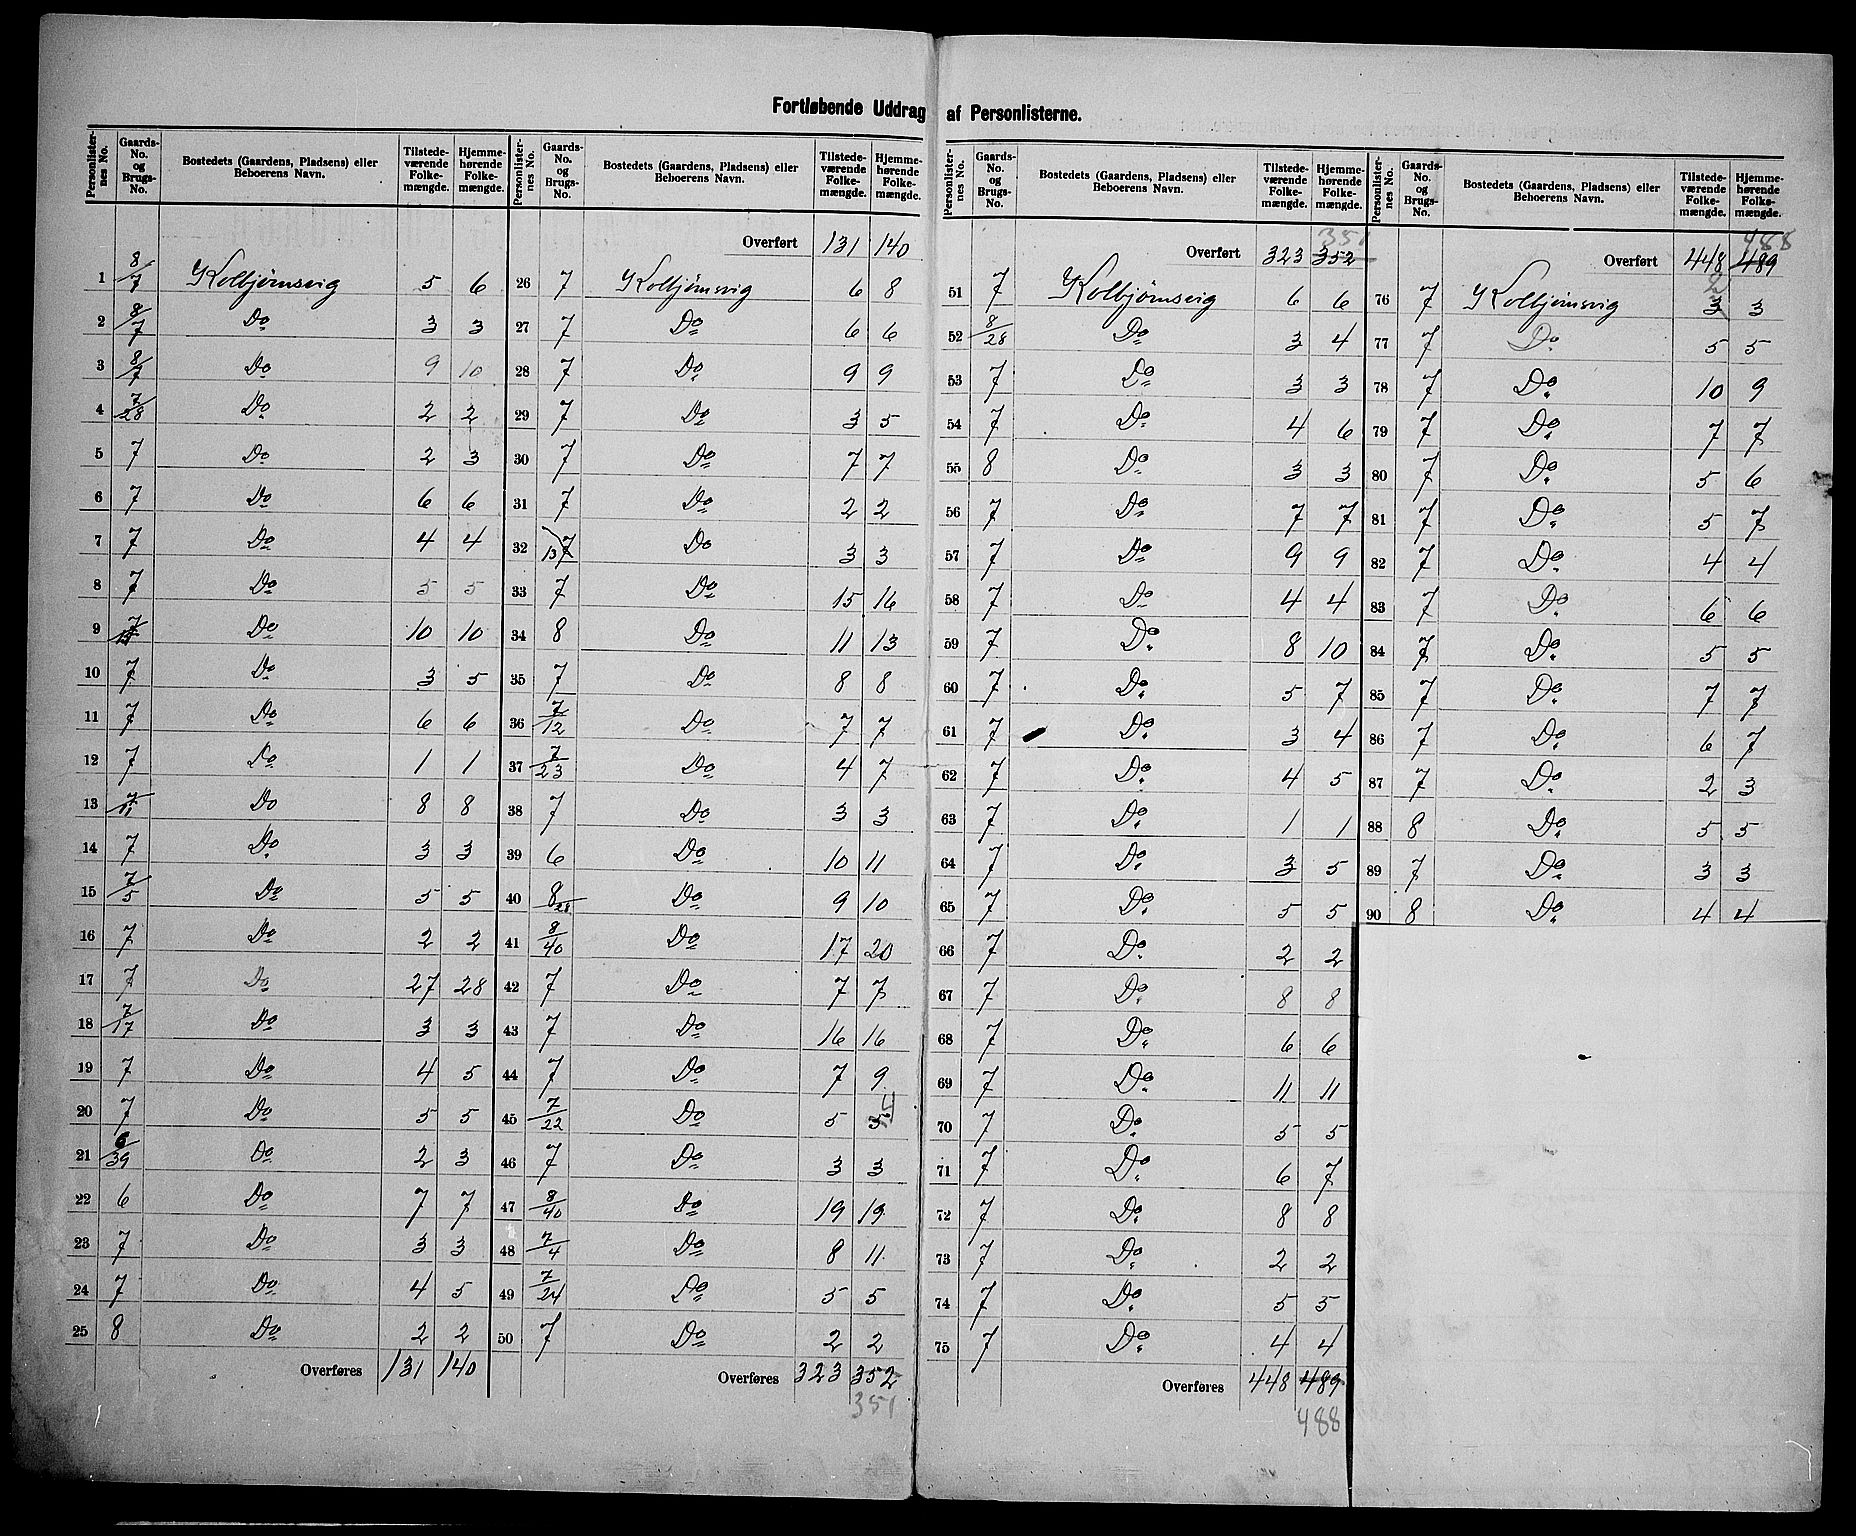 Fortløbende Uddrag af Personlisterne.
Personlisternes No. | Gaards-No. og Brugs-No. | Bostedets (Gaardens, Pladsens) eller Beboerens Navn. | Tilstedeværende Folkemængde. | Hjemmehørende Folkemængde.
1 8/7 Kolbjørnsvig 5 6
2 8/7 Do 3 3
3 8/7 Do 9 10
4 7/28 Do 2 2
5 7 Do 2 3
6 7 Do 6 6
7 7 Do 4 4
8 7 Do 5 5
9 7 Do 10 10
10 7 Do 3 5
11 7 Do 6 6
12 7 Do 1 1
13 7/11 Do 8 8
14 7 Do 3 3
15 7/5 Do 5 5
16 7 Do 2 2
17 7 Do 27 28
18 7/17 Do 3 3
19 7 Do 4 5
20 7 Do 5 5
21 6/39 Do 2 3
22 6 Do 7 7
23 7 Do 3 3
24 7 Do 4 5
25 8 Do 2 2
Overføres 131 140
Personlisternes No. | Gaards-No. og Brugs-No. | Bostedets (Gaardens, Pladsens) eller Beboerens Navn. | Tilstedeværende Folkemængde. | Hjemmehørende Folkemængde.
Overført 131 140
26 7 Kolbjørnsvig 6 8
27 7 Do 6 6
28 7 Do 9 9
29 7 Do 3 5
30 7 Do 7 7
31 7 Do 2 2
32 7/13 Do 3 3
33 7 Do 15 16
34 8 Do 11 13
35 7 Do 8 8
36 7/12 Do 7 7
37 7/23 Do 4 7
38 7 Do 3 3
39 6 Do 10 11
40 8/28 Do 9 10
41 8/40 Do 17 20
42 7 Do 7 7
43 7 Do 16 16
44 7 Do 7 9
45 7/22 Do 5 5 4
46 7 Do 3 3
47 8/40 Do 19 19
48 7/4 Do 8 11
49 7/24 Do 5 5
50 7 Do 2 2
Overføres 323 352
351
Personlisternes No. | Gaards-No. og Brugs-No. | Bostedets (Gaardens, Pladsens) eller Beboerens Navn. | Tilstedeværende Folkemængde. | Hjemmehørende Folkemængde.
351
Overført 323 352
51 7 Kolbjørnsvig 6 6
52 8/28 Do 3 4
53 7 Do 3 3
54 7 Do 4 6
55 8 Do 3 3
56 7 Do 7 7
57 7 Do 9 9
58 7 Do 4 4
59 7 Do 8 10
60 7 Do 5 7
61 7 Do 3 4
62 7 Do 4 5
63 7 Do 1 1
64 7 Do 3 5
65 7 Do 5 5
66 7 Do 2 2
67 7 Do 8 8
68 7 Do 6 6
69 7 Do 11 11
70 7 Do 5 5
71 7 Do 6 7
72 7 Do 8 8
73 7 Do 2 2
74 7 Do 5 5
75 7 Do 4 4
Overføres 448 489
488
Personlisternes No. | Gaards-No. og Brugs-No. | Bostedets (Gaardens, Pladsens) eller Beboerens Navn. | Tilstedeværende Folkemængde. | Hjemmehørende Folkemængde.
488
Overført 448 489
76 7 Kolbjørnsvig 3 2 3
77 7 Do 5 5
78 7 Do 10 9
79 7 Do 7 7
80 7 Do 5 6
81 7 Do 5 7
82 7 Do 4 4
83 7 Do 6 6
84 7 Do 5 5
85 7 Do 7 7
86 7 Do 6 7
87 7 Do 2 3
88 8 Do 5 5
89 7 Do 3 3
90 8 Do 4 4